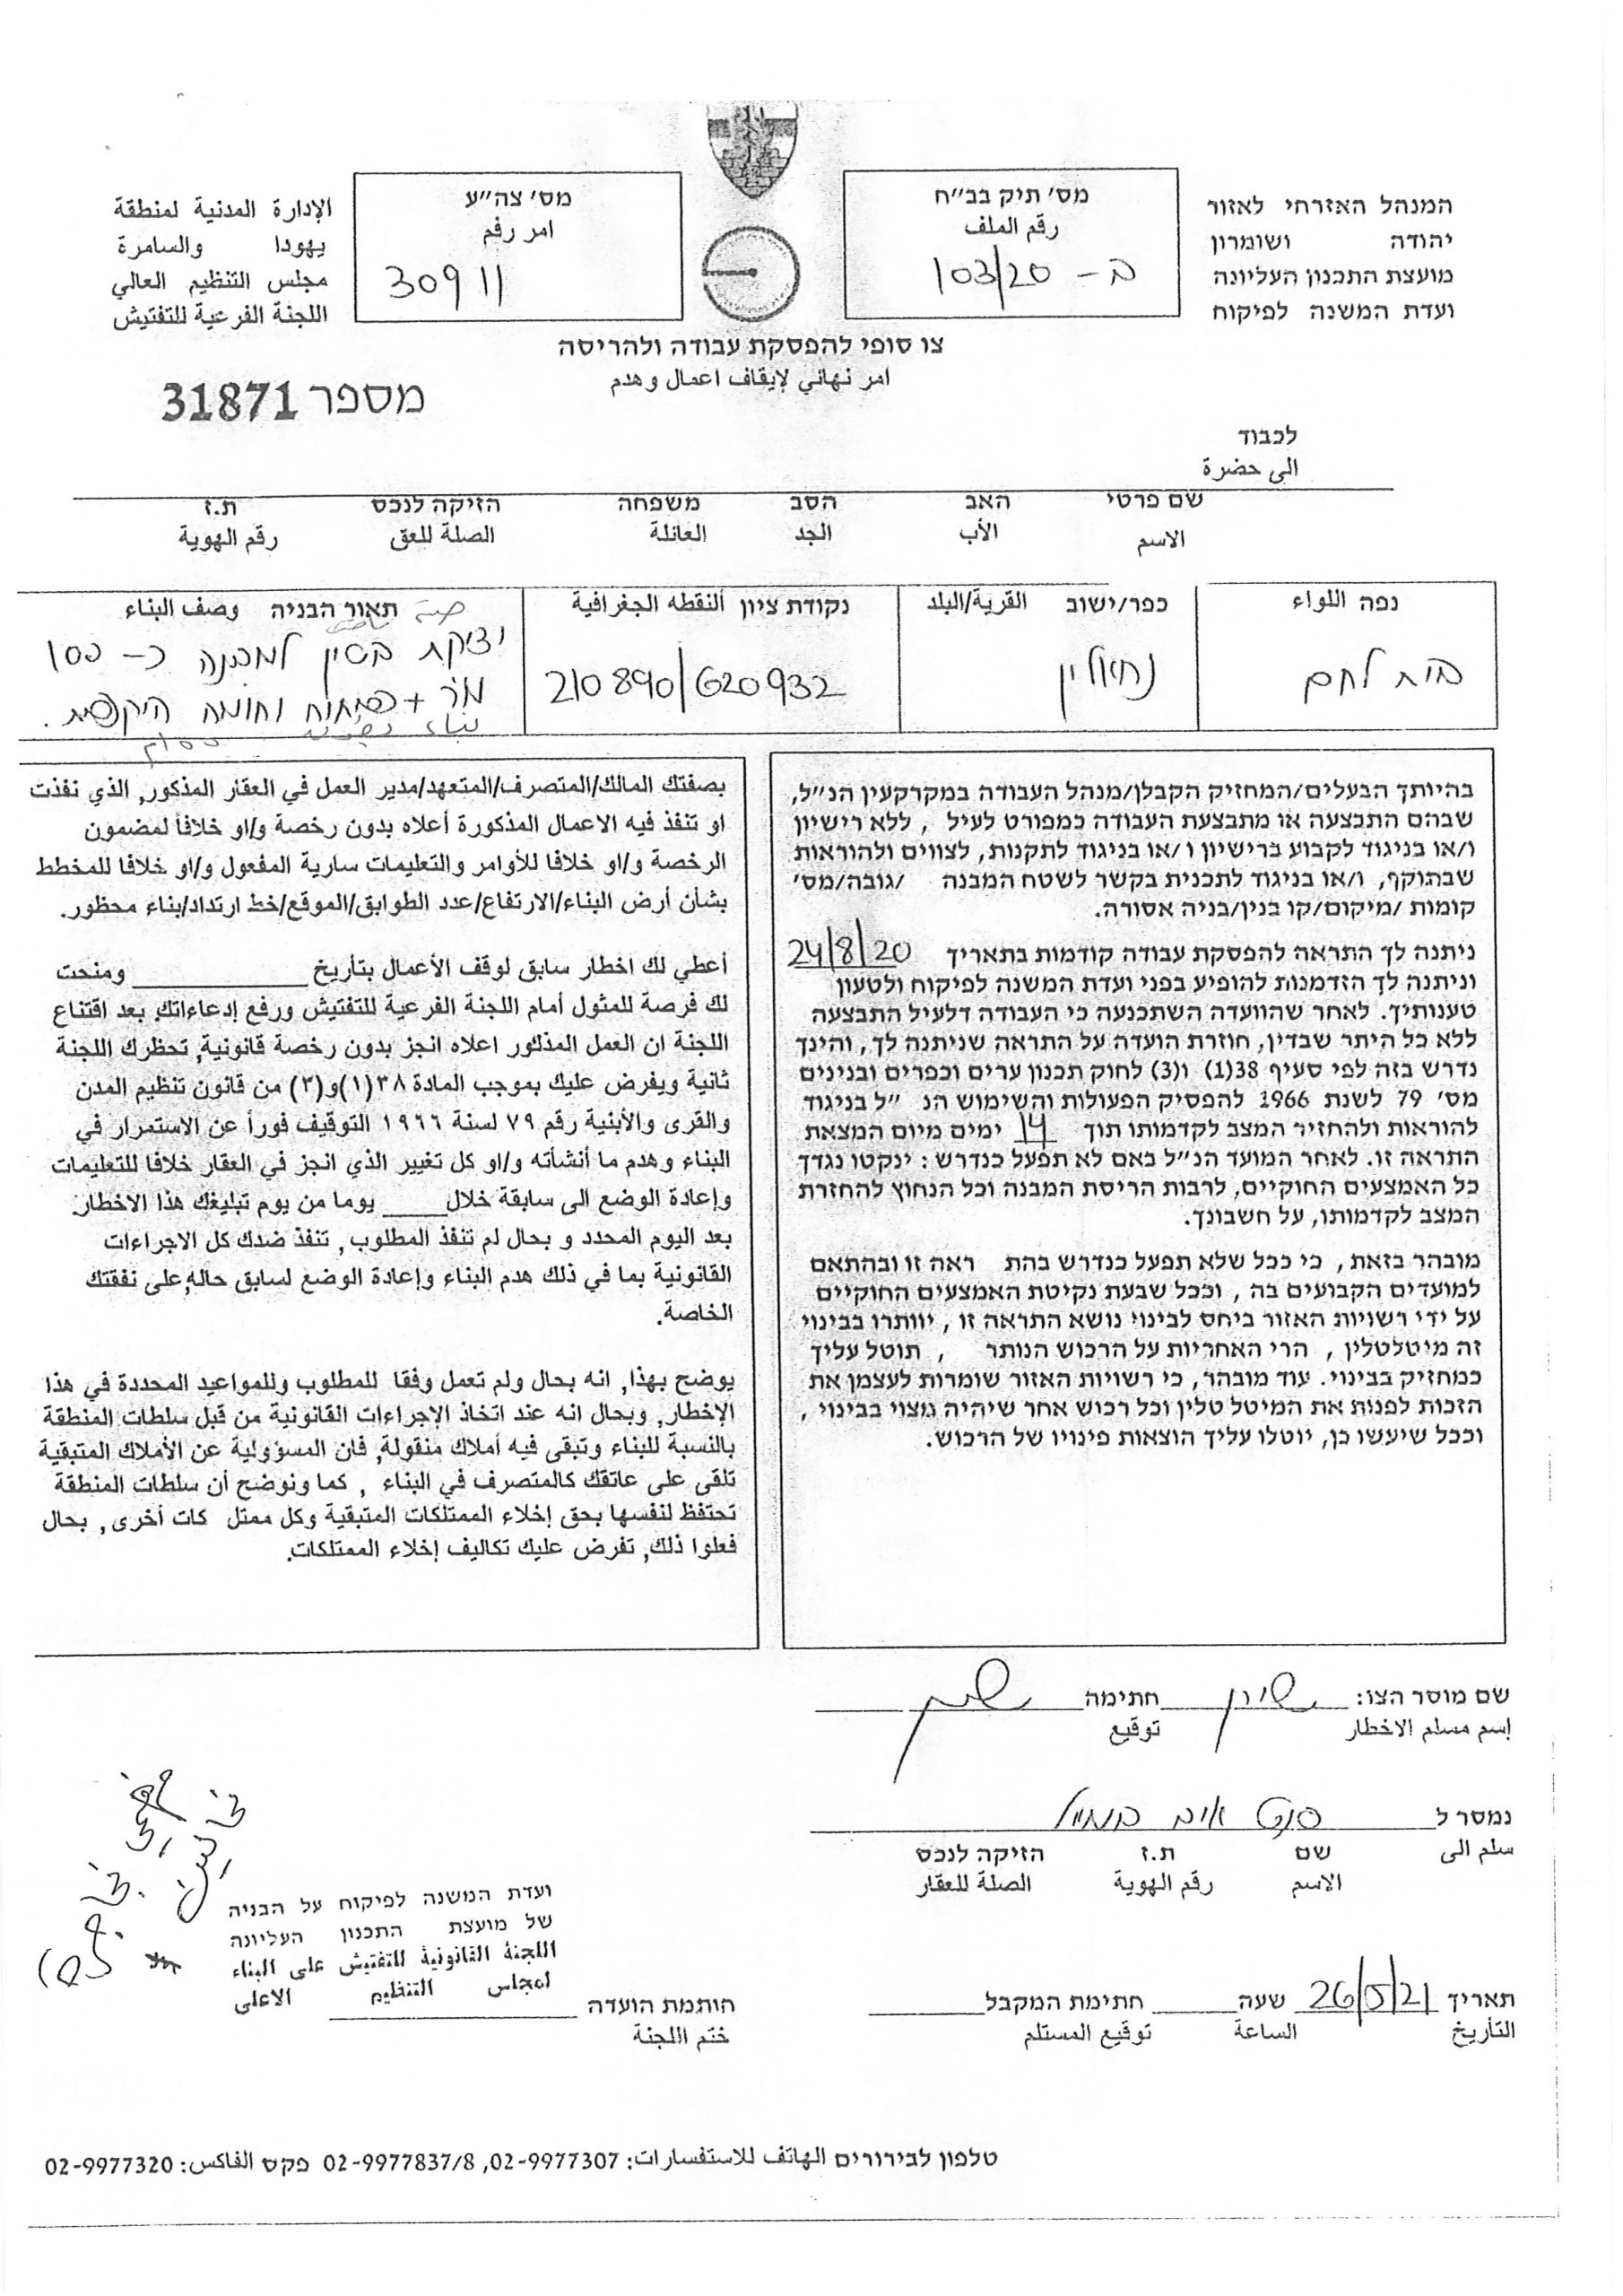 המנהל האזרחי לאזור
יהודה ושומרון
מועצת התכנון העליונה
ועדת המשנה לפיקוח
מס׳ תיק בב״ח
رقم الملف
ב - 103/20
מס׳ צה״ע
امر رقم
30911
الإدارة المدنية لمنطقة
يهودا والسامرة
مجلس التنظيم العالي
اللجنة الفرعية للتفتيش
צו סופי להפסקת עבודה ולהריסה
امر نهائي لإيقاف اعمال وهدم
מספר 31871
לכבוד
الى حضرة
שם פרטי האב הסב משפחה הזיקה לנכס ת.ז
الاسم الأب الجد العائلة الصلة للعق رقم الهوية
נפה اللواء
בית לחם
כפר/ישוב القرية/البلد
נחאלין
נקודת ציון النقطه الجغرافية
210890/620932
תאור הבניה وصف البناء
יציקת בטון למבנה כ- 100
מ״ר + וחומה היקפית.
בהיותך הבעלים/המחזיק הקבלן/מנהל העבודה במקרקעין הנ״ל,
שבהם התבצעה או מתבצעת העבודה כמפורט לעיל , ללא רישיון
ו/או בניגוד לקבוע ברישיון ו/או בניגוד לתקנות, לצווים ולהוראות
שבתוקף, ו/או בניגוד לתכנית בקשר לשטח המבנה /גובה/מס׳
קומות /מיקום/קו בנין/בניה אסורה.
ניתנה לך התראה להפסקת עבודה קודמות בתאריך 24/8/20
וניתנה לך הזדמנות להופיע בפני ועדת המשנה לפיקוח ולטעון
טענותיך. לאחר שהוועדה השתכנעה כי העבודה דלעיל התבצעה
ללא כל היתר שבדין, חוזרת הועדה על התראה שניתנה לך, והינך
נדרש בזה לפי סעיף 38(1) ו(3) לחוק תכנון ערים וכפרים ובנינים
מס׳ 79 לשנת 1966 להפסיק הפעולות והשימוש הנ ״ל בניגוד
להוראות ולהחזיר המצב לקדמותו תוך 14 ימים מיום המצאת
התראה זו. לאחר המועד הנ״ל באם לא תפעל כנדרש : ינקטו נגדך
כל האמצעים החוקיים, לרבות הריסת המבנה וכל הנחוץ להחזרת
המצב לקדמותו, על חשבונך.
מובהר בזאת , כי ככל שלא תפעל כנדרש בהת ראה זו ובהתאם
למועדים הקבועים בה , וככל שבעת נקיטת האמצעים החוקיים
על ידי רשויות האזור ביחס לבינוי נושא התראה זו , יוותרו בבינוי
זה מיטלטלין , הרי האחריות על הרכוש הנותר , תוטל עליך
כמחזיק בבינוי. עוד מובהר, כי רשויות האזור שומרות לעצמן את
הזכות לפנות את המיטל טלין וכל רכוש אחר שיהיה מצוי בבינוי ,
וככל שיעשו כן, יוטלו עליך הוצאות פינויו של הרכוש.
بصفتك المالك/المتصرف/المتعهد/مدير العمل في العقار المذكور, الذي نفذت
او تنفذ فيه الاعمال المذكورة أعلاه بدون رخصة و/او خلافاً لمضمون
الرخصة و/او خلافا للأوامر والتعليمات سارية المفعول و/او خلافا للمخطط
بشأن أرض البناء/الارتفاع/عدد الطوابق/الموقع/خط ارتداد/بناء محظور.
أعطي لك اخطار سابق لوقف الأعمال بتأريخ ______ ومنحت
لك فرصة للمثول أمام اللجنة الفرعية للتفتيش ورفع إدعاءاتك. بعد اقتناع
اللجنة ان العمل المذكور اعلاه انجز بدون رخصة قانونية, تحظرك اللجنة
ثانية ويفرض عليك بموجب المادة ٣٨(١)و(٣) من قانون تنظيم المدن
والقرى والأبنية رقم ٧٩ لسنة ١٩٦٦ التوقيف فوراً عن الاستمرار في
البناء وهدم ما أنشأته و/او كل تغيير الذي انجز في العقار خلافا للتعليمات
وإعادة الوضع الى سابقة خلال____ يوما من يوم تبليغك هذا الاخطار.
بعد اليوم المحدد و بحال لم تنفذ المطلوب, تنفذ ضدك كل الاجراءات
القانونية بما في ذلك هدم البناء وإعادة الوضع لسابق حاله,على نفقتك
الخاصة.
يوضح بهذا, انه بحال ولم تعمل وفقا للمطلوب وللمواعيد المحددة في هذا
الإخطار, وبحال انه عند اتخاذ الإجراءات القانونية من قبل سلطات المنطقة
بالنسبة للبناء وتبقى فيه أملاك منقولة, فان المسؤولية عن الأملاك المتبقية
تلقى على عاتقك كالمتصرف في البناء , كما ونوضح أن سلطات المنطقة
تحتفظ لنفسها بحق إخلاء الممتلكات المتبقية وكل ممتل كات أخرى, بحال
فعلوا ذلك, تفرض عليك تكاليف إخلاء الممتلكات.
שם מוסר הצו: חתימה
إسم مسلم الاخطار توقيع
נמסר ל
سلم الى
שם ת.ז הזיקה לנכס
الاسم رقم الهوية الصلة للعقار
ועדת המשנה לפיקוח על הבניה
של מועצת התכנון העליונה
اللجنة القانونية للتفتيش على البناء
لمجلس التنظيم الاعلى
תאריך 26/5/21 שעה______ חתימת המקבל______
التأريخ الساعة توقيع المستلم
חותמת הועדה ______
ختم اللجنة
טלפון לבירורים الهاتف للاستفسارات: 02-9977307, 02-9977837/8 פקס الفاكس: 02-9977320